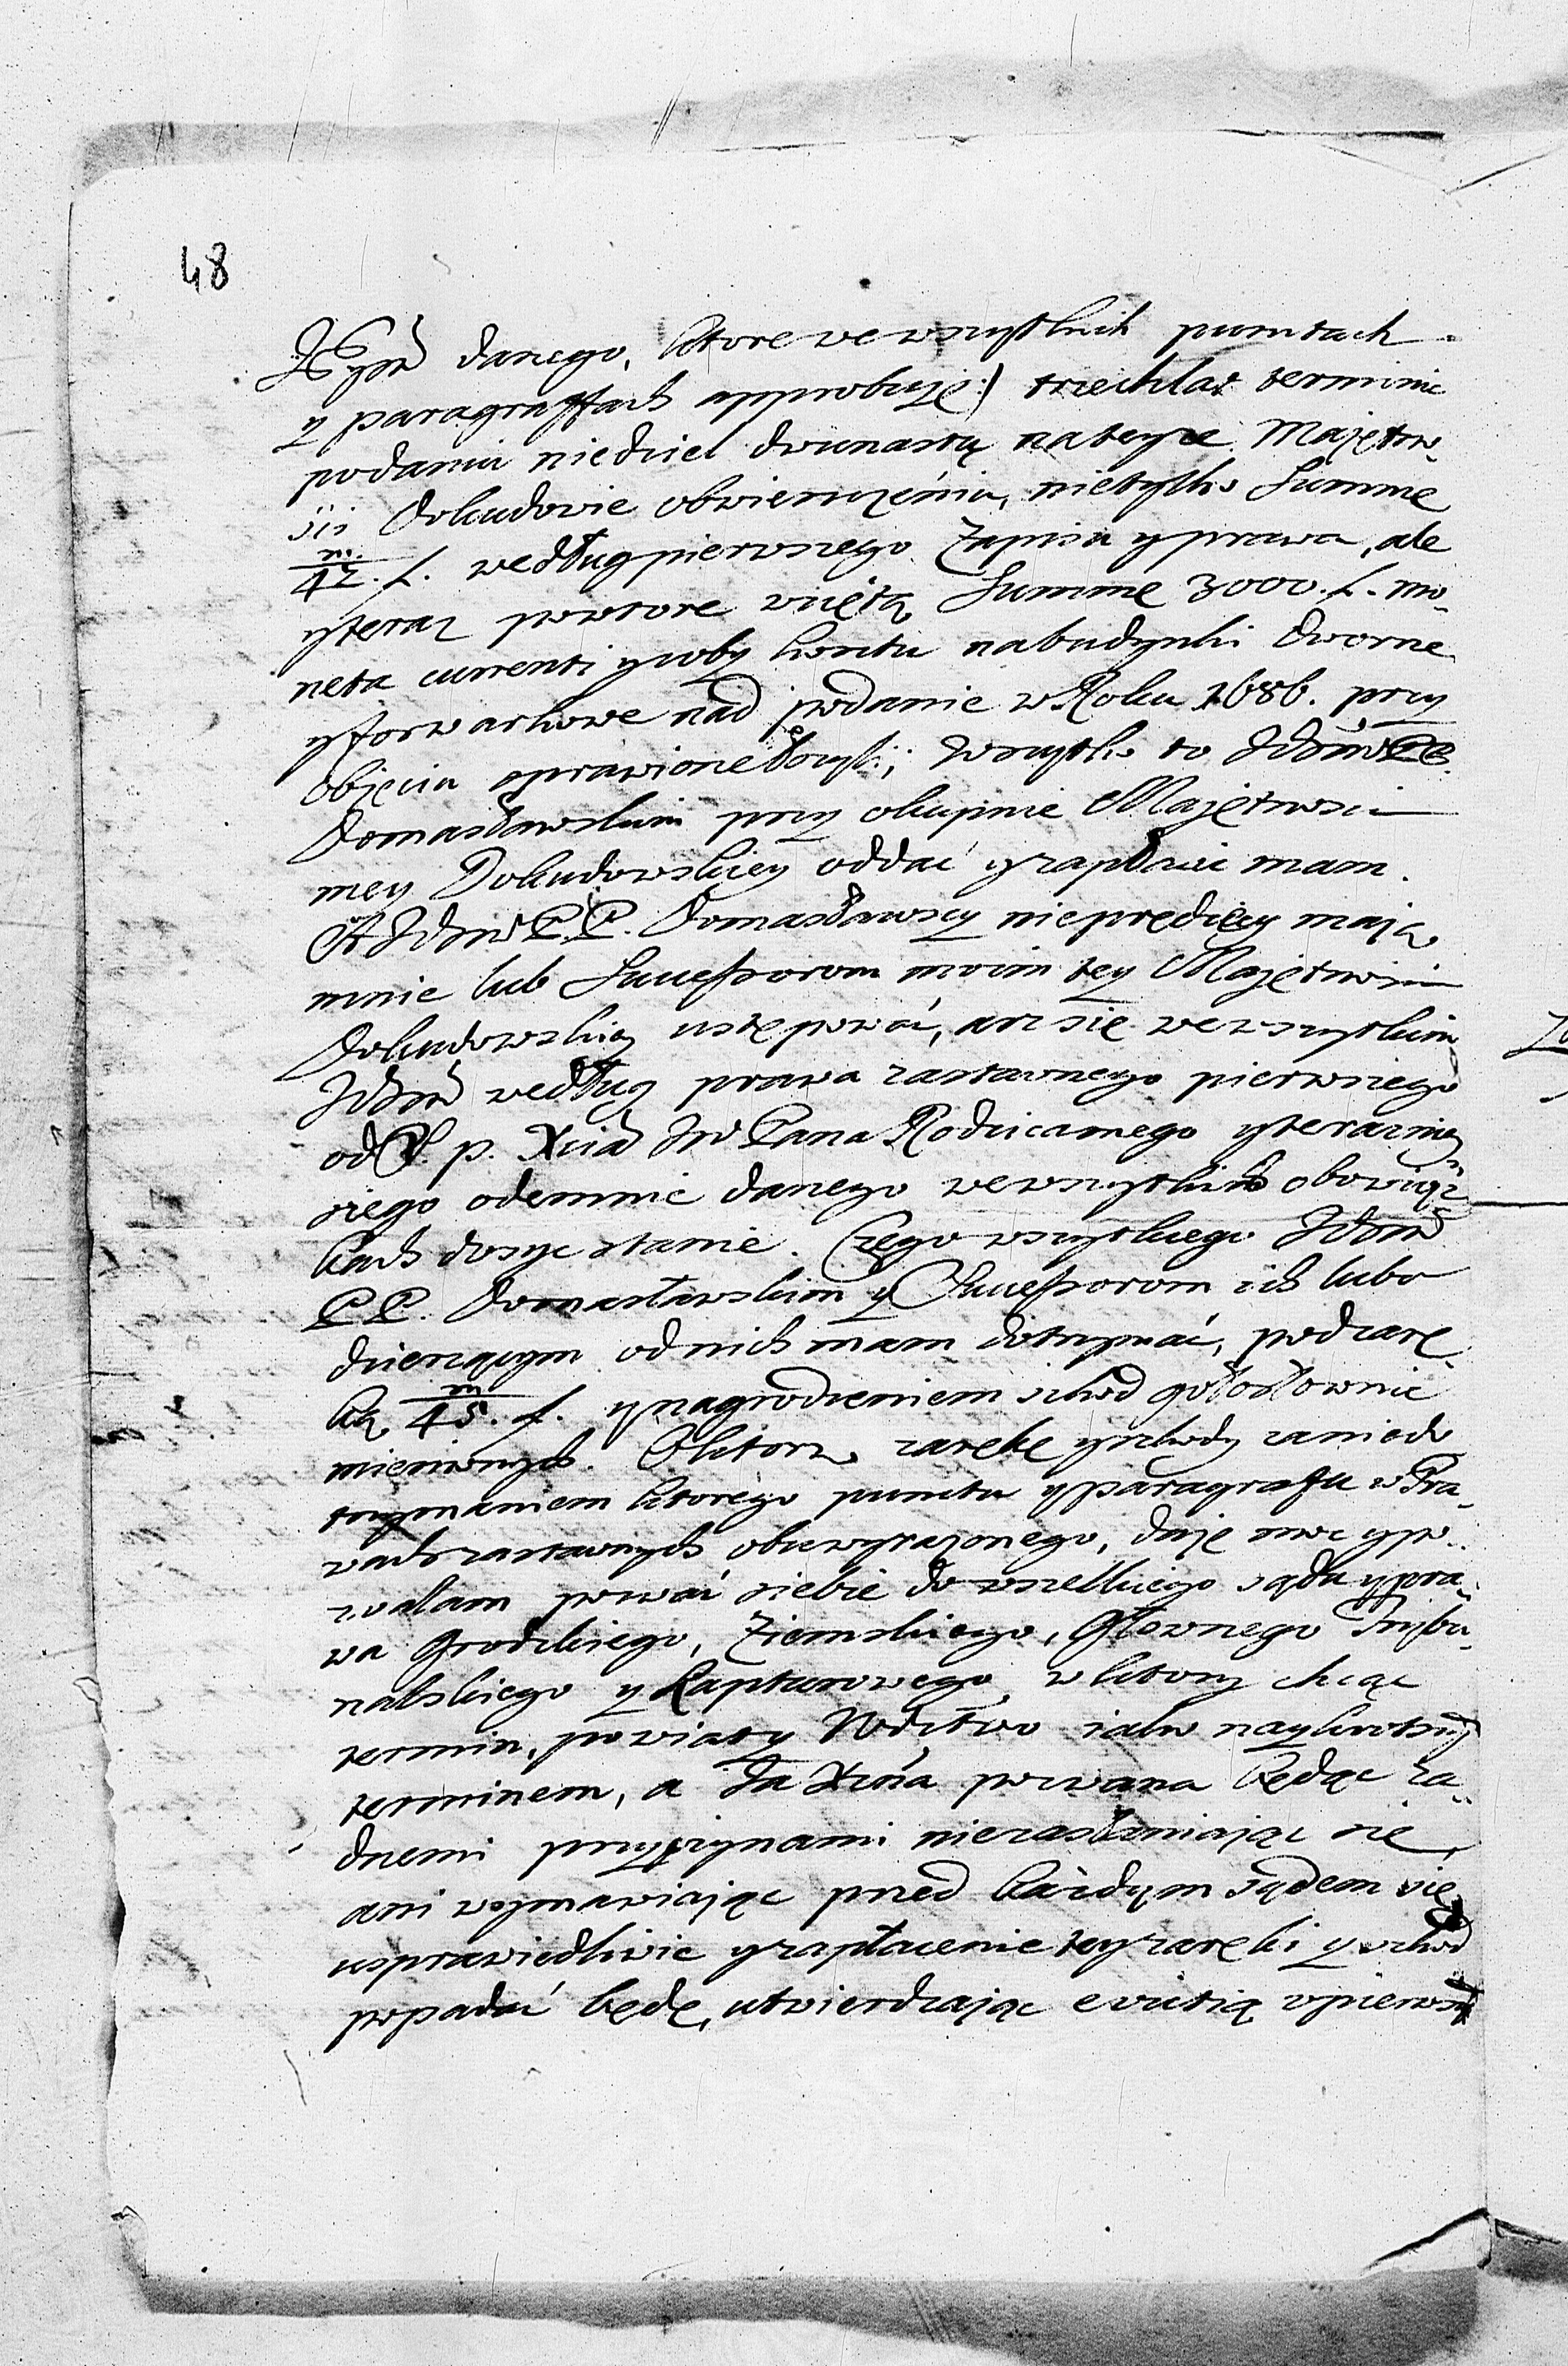 48
Ichmć danego, ktore we wszystkich punktach
y paragraffach approbuję:) trzech lat terminie
podaniu niedziel dwunastą na teyże Majętno,
sci Dokudowie obwiesczeniu, nietylko Summę
m/42. f. według pierwszego Zapisu y prawa, ale
y teraz powtore wziętą Summę 3000. f. mo,
neta currenti y coby kosztu na budynki dworne
y forwarkowe nad podanie w Roku 1686. przy
obięciu sprawione łożyli; wszystko to Ichmć PP.
Domasławskim przy okupnie Majętnosci
mey Dokudowskiey oddać y zapłacić mam.
A Ichmć PP. Domasławscy nieprędzey mają
mnie lub Sukcessorom moim tey Majętnosci
Dokudowskiey ustępować, aż się we wszystkim
Ichmć według prawa zastawnego pierwszego
od S. p. Xcia JW Pana Rodzica mego y terazniey,
szego odemnie danego we wszystkich obowiąz,
kach dosyc stanie. Czego wszystkiego Ichmć
PP. Domasławskim y Sukcessorom ich lubo
dzierzącym od nich mam dotrzymać, pod zarę,
ką m/45. f. y nagrodzeniem szkod gołosłownie
mienionych. O ktorą zarękę y szkody za niedo
trzymaniem ktorego punktu y paragrafu w Pra,
wach zastawnych obu wyrażonego, daję moc y po,
zwalam pozwać siebie do wszelkiego sądu y pra,
wa Grodzkiego, Ziemskiego, Głownego Trybu,
nalskiego y Kapturowego w ktory chcąc
termin, powiaty Wdztwo iako naykrotszym
terminem, a Ja Xżna pozwana będąc ża,
dnemi przyczynami niezasłaniając się,
ani wymawiając przed każdym sądem się
usprawiedliwic y zapłacenie tey zaręki y szkod
popadać będę, utwierdzając evictią w pierwszym